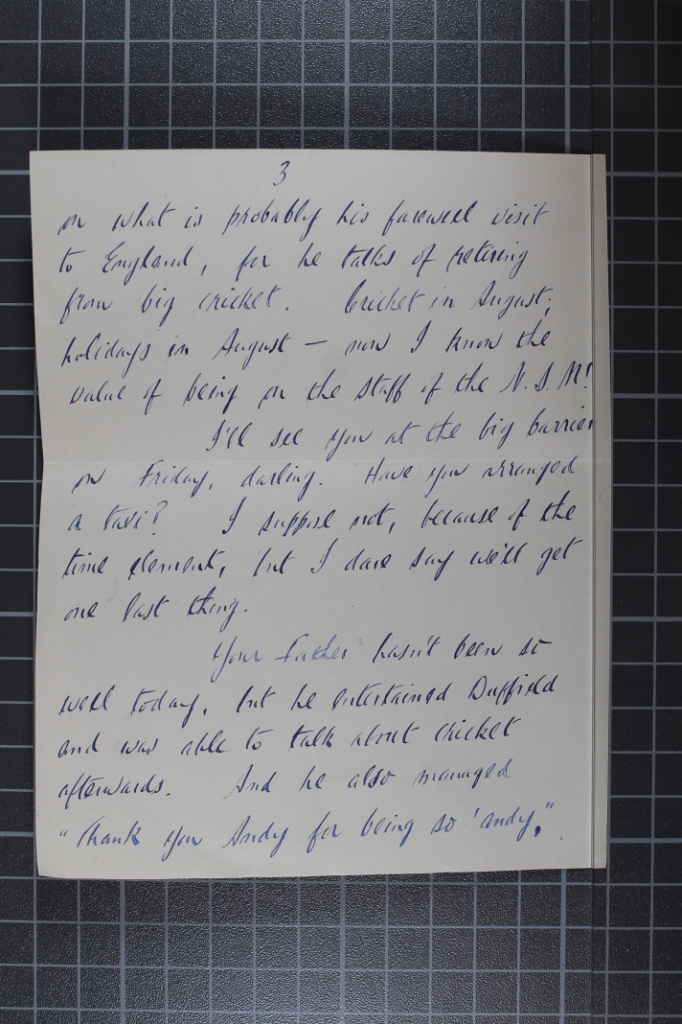 3
on what is probably his farewell visit
to England, for he talks of retiring
from big cricket. Cricket in August;
holidays in August — now I know the
value of being on the staff of the N.S.M!
I'll see you at the big barrier
on Friday, darling. Have you arranged
a taxi? I suppose not, because of the
time element, but I dare say we'll get
one last thing.
Your Father hasn't been so
well today, but he entertained Duffield
and was able to talk about cricket
afterwards. And he also managed
"Thank you Andy for being so 'andy."